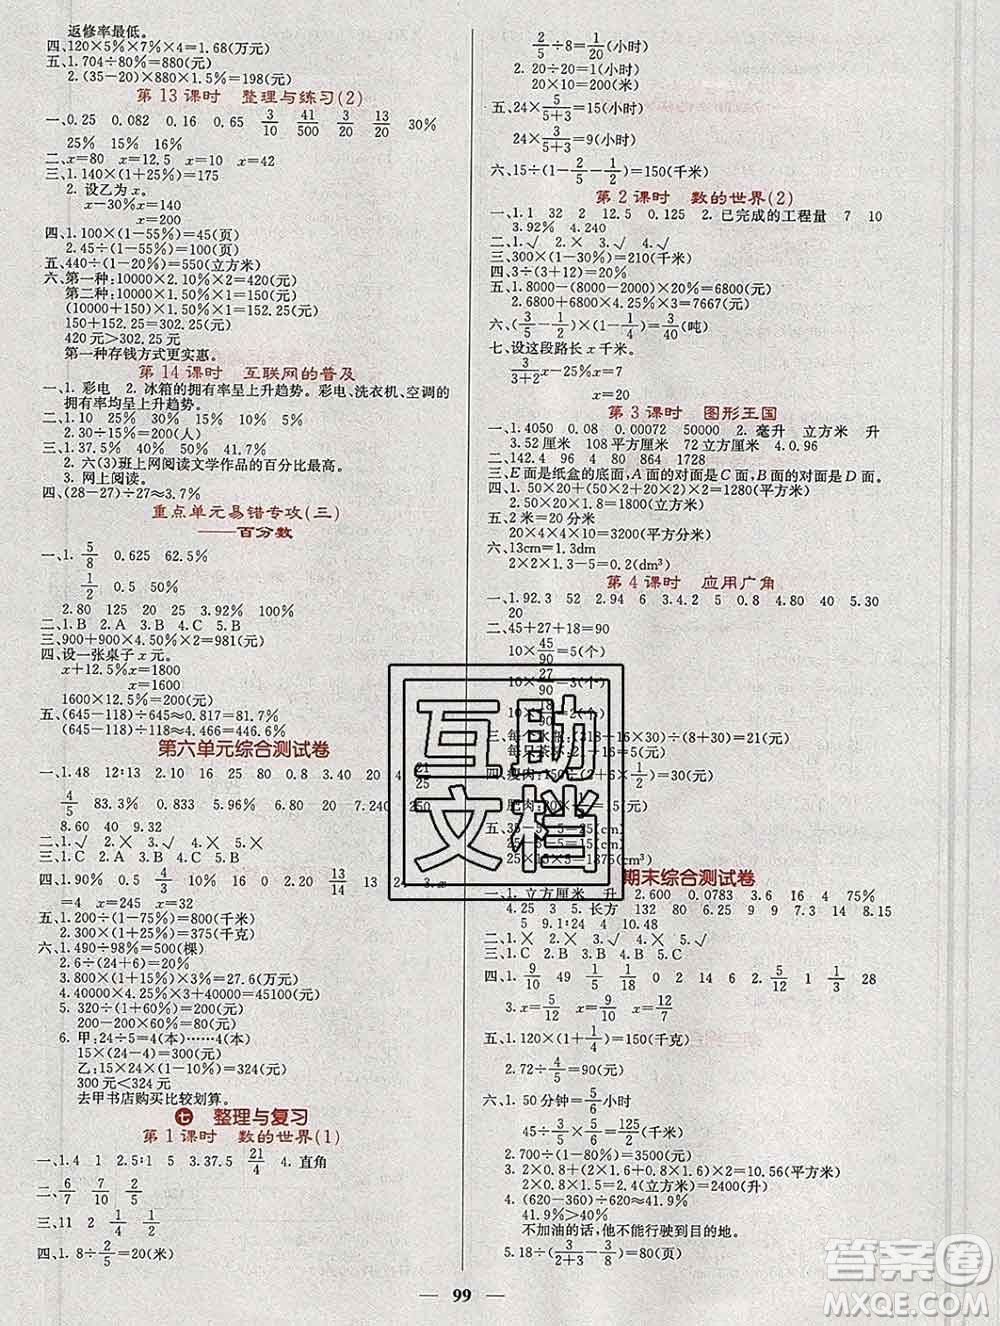 返修率最低。
四、120×5%×7%×4=1.68(万元)
五、1.704÷80%=880(元)
2.(35-20)×880×1.5%=198(元)
第13课时 整理与练习(2)
一、0.25 0.082 0.16 0.65 3/10 41/500 3/4 13/20 30%
25% 15% 16%
二、x=80 x=12.5 x=10 x=42
三、1.140×(1+25%)=175
2. 设乙为x。
x-30%x=140
x=200
四、1.100×(1-55%)=45(页)
2.45÷(1-55%)=100(页)
五、440÷(1-20%)=550(立方米)
六、第一种:10000×2.10%×2=420(元)
第二种:10000×1.50%×1=150(元)
(10000+150)×1.50%×1=152.25(元)
150+152.25=302.25(元)
420元>302.25元
第一种存钱方式更实惠。
第14课时 互联网的普及
一、1. 彩电 2. 冰箱的拥有率呈上升趋势。彩电、洗衣机、空调的
拥有率均呈上升趋势。
二、1.10 25% 20% 30% 15%
2.30÷15%=200(人)
三、1.37.5% 40% 35% 50% 41.7%
2. 六(3)班上网阅读文学作品的百分比最高。
3. 网上阅读。
四、(28-27)÷27≈3.7%
重点单元易错专攻(三)
——百分数
一、1. 5/8 0.625 62.5%
1/2 0.5 50%
2.80 125 20 25 3.92% 4.60
二、1.B 2.A 3.B 4.A
三、900+900×4.50%×2=981(元)
四、设一张桌子x元。
x+12.5%x=1800
x=1600
1600×12.5%=200(元)
五、(645-118)÷645≈0.817=81.7%
(645-118)÷118≈4.466=446.6%
第六单元综合测试卷
一、1.48 12:13 2.10 16 25 250 3.20 25 4. 21/25
4/5 83.3% 0.833 5.96% 6.240 320 7.240 250
8.60 40 9.32
二、1.√ 2.× 3.× 4.× 5.√
三、1.C 2.A 3.B 4.C 5.A
四、1.90% 0.5 4/3 10 16 0 2.20 13/14 13 24 3.x
=4 x=245 x=32
五、1.100×(1-75%)=25(千米)
2.300×(1+25%)=375(千克)
六、1.490÷98%=500(棵)
2.6÷(24+6)=20%
3.800×(1+15%)×3%=27.6(万元)
4.40000×4.25%×3+40000=45100(元)
5.320÷(1+60%)=200(元)
200-200×60%=80(元)
6. 甲:24÷5=4(本)……4(本)
15×(24-4)=300(元)
乙:15×24×(1-10%)=324(元)
300元<324元
去甲书店购买比较划算。
七 整理与复习
第1课时 数的世界(1)
一、1.4 1 2.5:1 5 3.37.5 21/4 4. 直角
二、6/7 7/10 2/5
三、11 2 1/4 1/2
四、1. 8÷2/5=20(米)
2/5÷8=1/20(小时)
2. 20÷20=1(小时)
20×10=200(米)
五、24×5/(5+3)=15(小时)
24×3/(5+3)=9(小时)
六、15÷(1-2/5-1/2)=150(千米)
第2课时 数的世界(2)
一、1.1 32 2 12.5 0.125 2. 已完成的工程量 7 10
3.92% 4.240
二、1.√ 2.× 3.√ 4.√
三、300×(1-30%)=210(千米)
四、3÷(3+12)=20%
五、1.8000-(8000-2000)×20%=6800(元)
2.6800+6800×4.25%×3=7667(元)
六、(3/5-1/2)×(1-1/4)=3/40(吨)
七、设这段路长x千米。
3/(3+2)x-25%x=7
x=20
第3课时 图形王国
一、1.4050 0.08 0.00072 50000 2. 毫升 立方米 升
3.52厘米 108平方厘米 72立方厘米 4.0.96
二、142.4 96 80 864 1728
三、E面是纸盒的底面,A面的对面是C面,B面的对面是D面。
四、1.50×20+(50×2+20×2)×2=1280(平方米)
2.50×20×1.8=1800(立方米)
五、2米=20分米
20×4×10=800(平方分米)
六、13cm=1.3dm
2×2×1.3-5=0.2(dm³)
第4课时 应用广角
一、1.92.3 52 2.94 6 3.4.2 5 0.8 4.80 30
20
二、45+27+18=90
10×45/90=5(个)
三、
四、瘦肉:
五、
期末综合测试卷
一、1. 立方厘米 升 2.600 0.0783 3.16 4 75%
4.25 3 5. 长方 132 80 6.25 9 7.9 14 8.15
5 9.1:24 10.48
二、1.× 2.× 3.√ 4.× 5.√
三、1.C 2.B 3.C 4.B 5.C
四、1. 9/10 49 1/10 0 2 14 6 2. 9/10 1/2 28
3.x=5/12 x=9/10 x=1/6
五、1.120×(1+1/4)=150(千克)
2.72÷4/5=90(千米)
六、1.50分钟=5/6小时
45÷5/6=54(千米) 45/125/2
2.700÷(1-80%)=3500(元)
3.2×1.6+(2×1.6+0.8×1.6)×2=10.56(平方米)
2×0.8×1.5=2.4(立方米)=2400(升)
4.(620-360)÷620≈41.9%
41.9%>40%
不加油的话,他不能行驶到目的地。
5.18÷(3/(2+3)-3/8)=80(页)
99
互助文档
答案圈
MXQE.COM